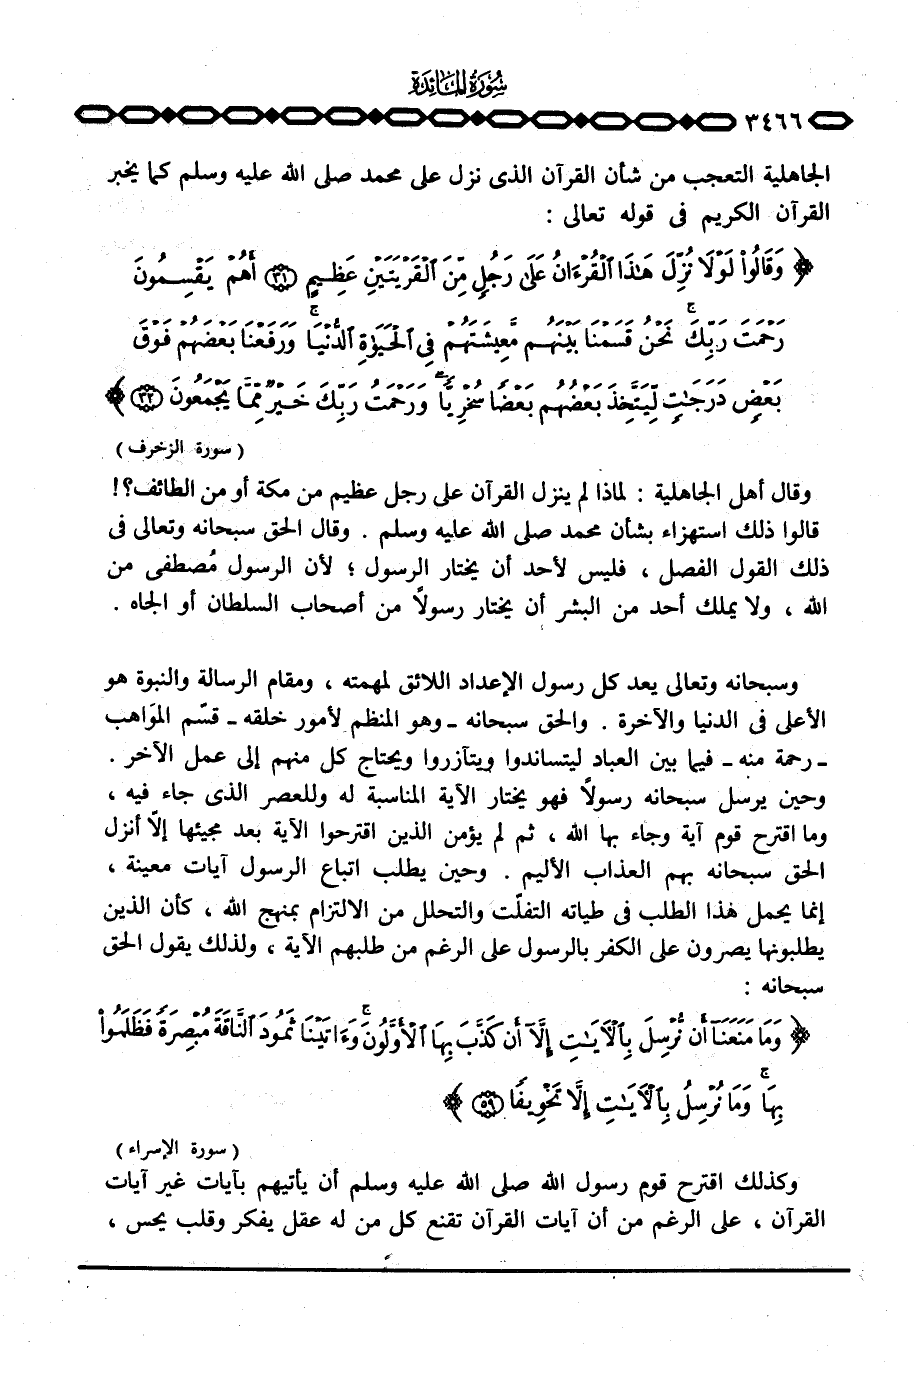 سُورَةُ المَائِدَة
٣٤٦٦
الجاهلية التعجب من شأن القرآن الذى نزل على محمد صلى الله عليه وسلم كما يخبر
القرآن الكريم فى قوله تعالى :
﴿ وَقَالُوا۟ لَوْلَا نُزِّلَ هَـٰذَا ٱلْقُرْءَانُ عَلَىٰ رَجُلٍ مِّنَ ٱلْقَرْيَتَيْنِ عَظِيمٍ (٣١) أَهُمْ يَقْسِمُونَ
رَحْمَتَ رَبِّكَ ۚ نَحْنُ قَسَمْنَا بَيْنَهُم مَّعِيشَتَهُمْ فِى ٱلْحَيَوٰةِ ٱلدُّنْيَا ۚ وَرَفَعْنَا بَعْضَهُمْ فَوْقَ
بَعْضٍ دَرَجَـٰتٍ لِّيَتَّخِذَ بَعْضُهُم بَعْضًا سُخْرِيًّا ۗ وَرَحْمَتُ رَبِّكَ خَيْرٌ مِّمَّا يَجْمَعُونَ (٣٢) ﴾
( سورة الزخرف )
وقال أهل الجاهلية : لماذا لم ينزل القرآن على رجل عظيم من مكة أو من الطائف؟!
قالوا ذلك استهزاء بشأن محمد صلى الله عليه وسلم . وقال الحق سبحانه وتعالى فى
ذلك القول الفصل ، فليس لأحد أن يختار الرسول ؛ لأن الرسول مُصطفى من
الله ، ولا يملك أحد من البشر أن يختار رسولاً من أصحاب السلطان أو الجاه .
وسبحانه وتعالى يعد كل رسول الإعداد اللائق لمهمته ، ومقام الرسالة والنبوة هو
الأعلى فى الدنيا والآخرة . والحق سبحانه - وهو المنظم لأمور خلقه - قسّم المَواهب
- رحمة منه - فيما بين العباد ليتساندوا ويتآزروا ويحتاج كل منهم إلى عمل الآخر .
وحين يرسل سبحانه رسولاً فهو يختار الآية المناسبة له وللعصر الذى جاء فيه ،
وما اقترح قوم آية وجاء بها الله ، ثم لم يؤمن الذين اقترحوا الآية بعد مجيئها إلاّ أنزل
الحق سبحانه بهم العذاب الأليم . وحين يطلب اتباع الرسول آيات معينة ،
إنما يحمل هذا الطلب فى طياته التفلّت والتحلل من الالتزام بمنهج الله ، كأن الذين
يطلبونها يصرون على الكفر بالرسول على الرغم من طلبهم الآية ، ولذلك يقول الحق
سبحانه :
﴿ وَمَا مَنَعَنَآ أَن نُّرْسِلَ بِٱلْـَٔايَـٰتِ إِلَّآ أَن كَذَّبَ بِهَا ٱلْأَوَّلُونَ ۚ وَءَاتَيْنَا ثَمُودَ ٱلنَّاقَةَ مُبْصِرَةً فَظَلَمُوا۟
بِهَا ۚ وَمَا نُرْسِلُ بِٱلْـَٔايَـٰتِ إِلَّا تَخْوِيفًا (٥٩) ﴾
( سورة الإسراء )
وكذلك اقترح قوم رسول الله صلى الله عليه وسلم أن يأتيهم بآيات غير آيات
القرآن ، على الرغم من أن آيات القرآن تقنع كل من له عقل يفكر وقلب يحس ،